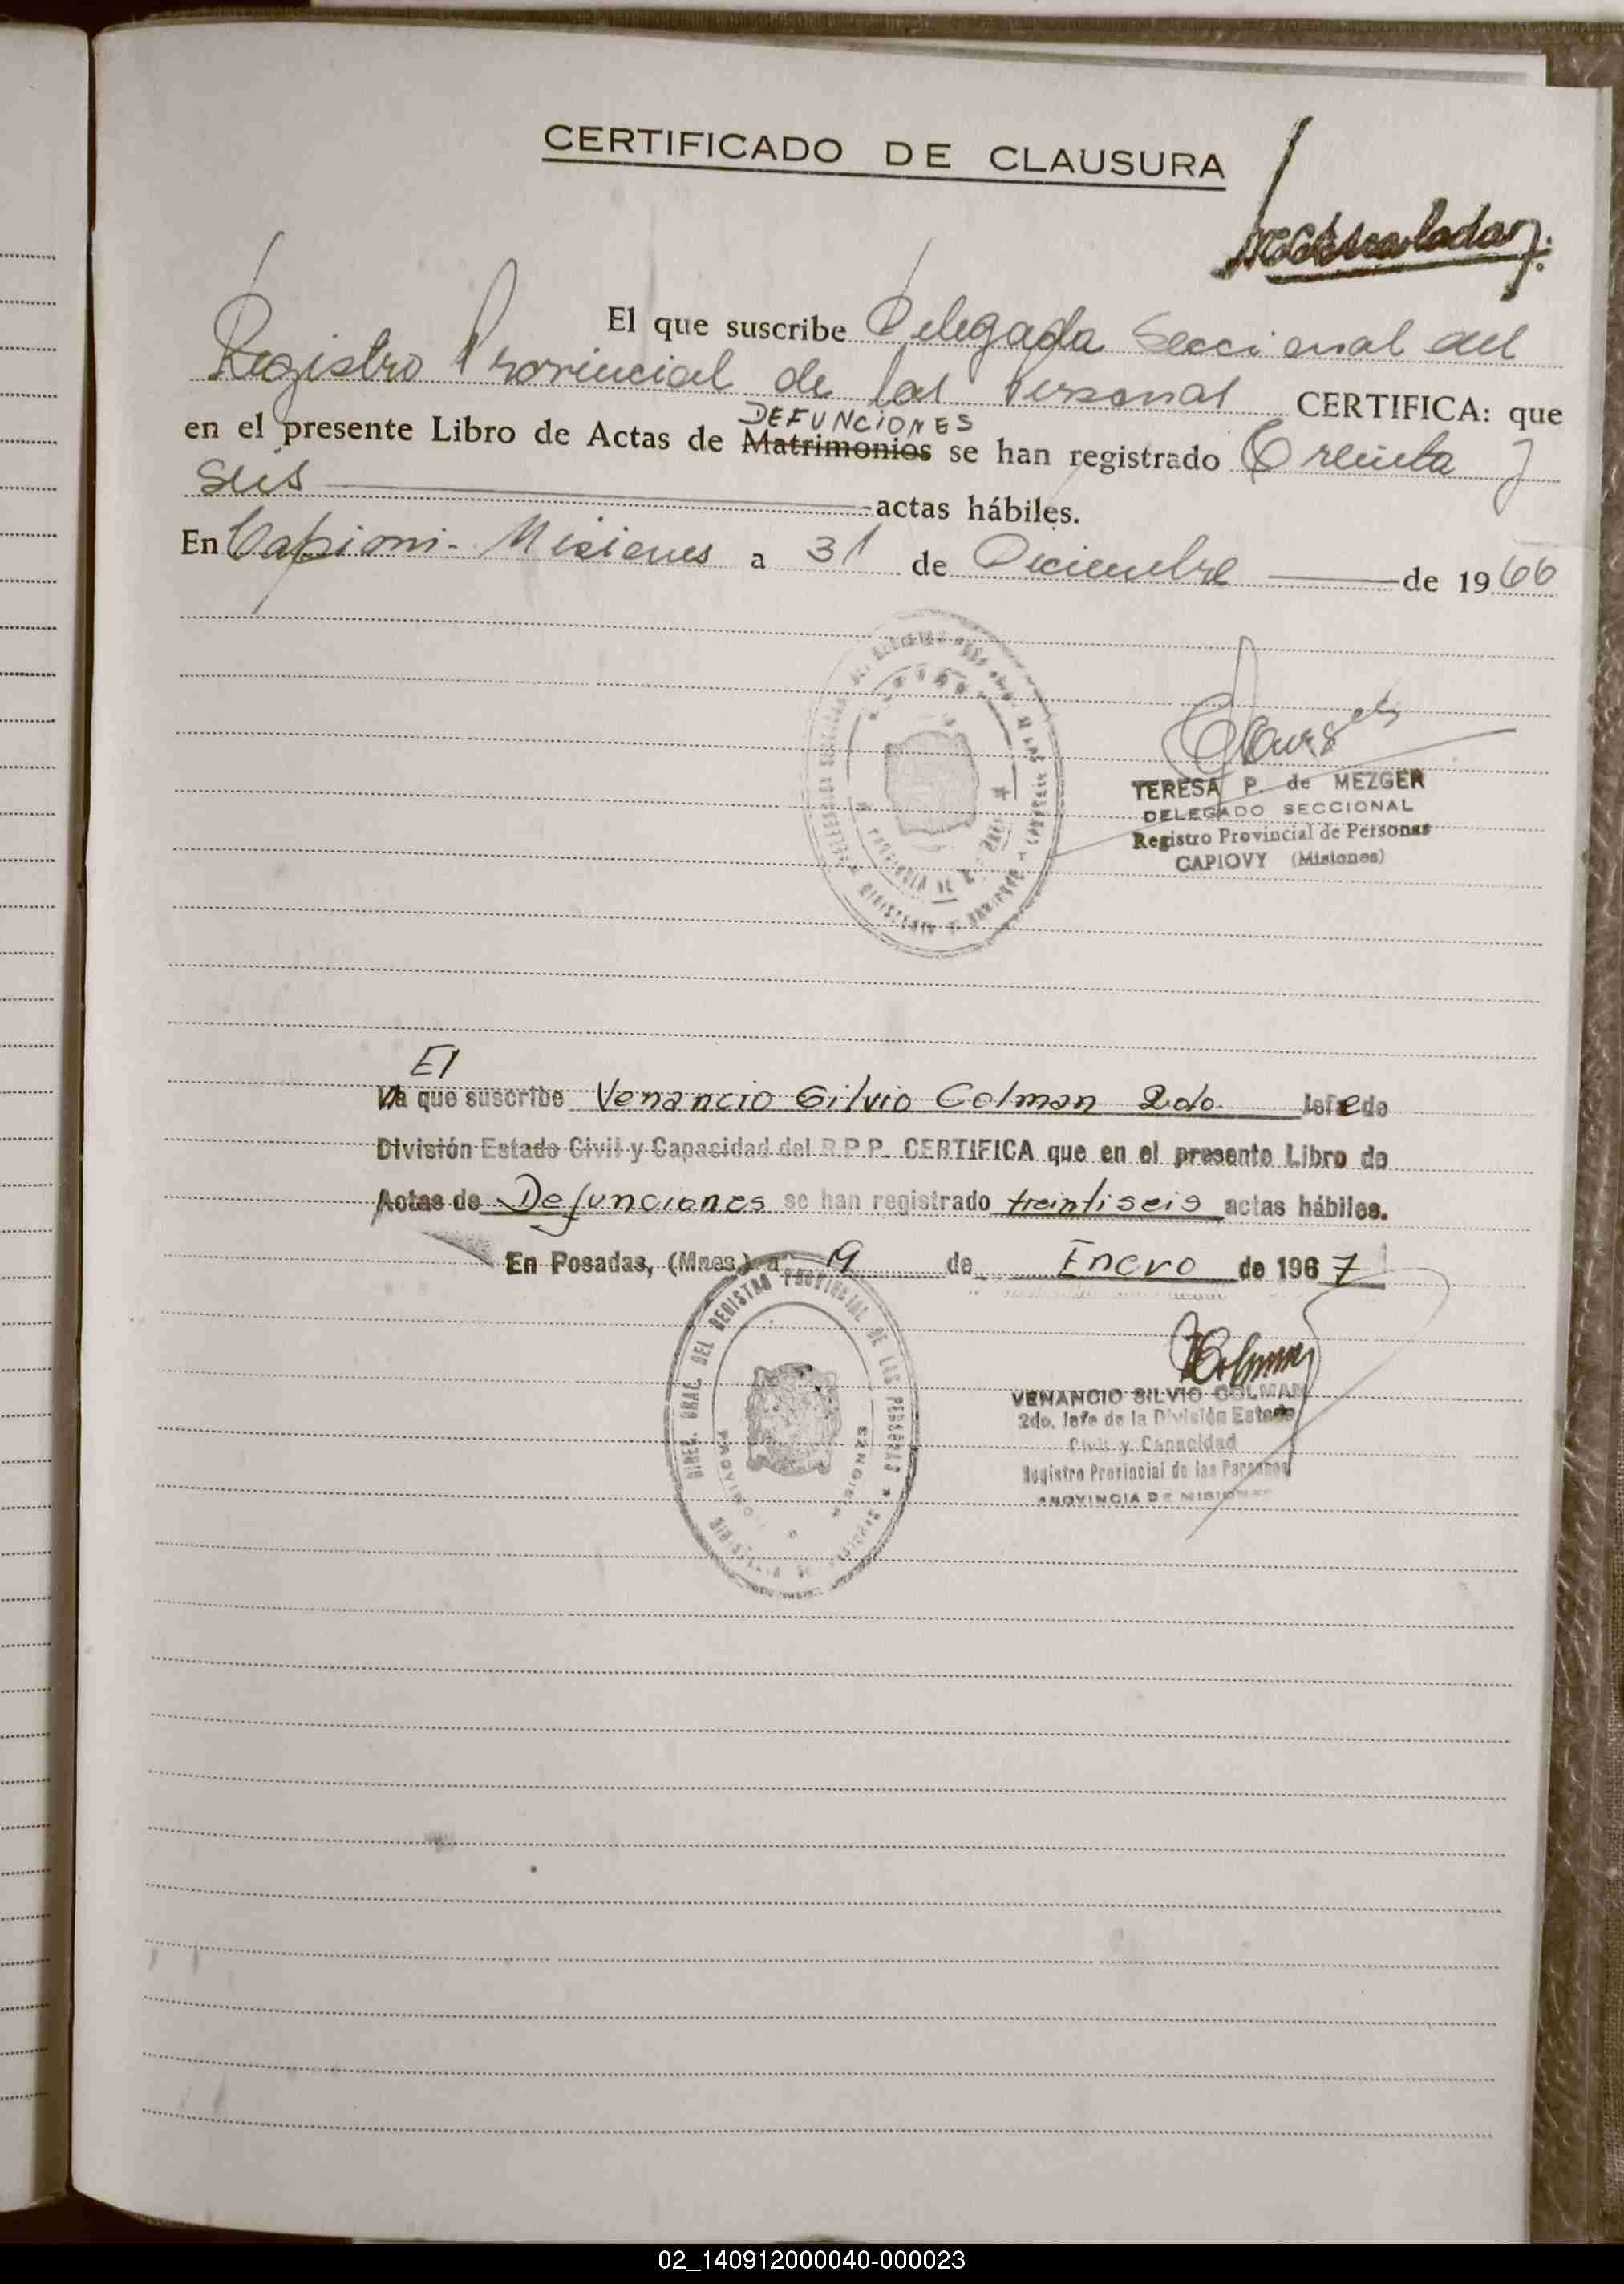 CERTIFICADO DE CLAUSURA
El que suscribe Delegada Seccional del
Registro Provincial de las Personas CERTIFICA: que
DEFUNCIONES
en el presente Libro de Actas de Matrimonios se han registrado Treinta y
seis actas hábiles.
En Capiovi - Misiones a 31 de Diciembre de 1966
TERESA P. de MEZGER
DELEGADO SECCIONAL
Registro Provincial de Personas
CAPIOVY (Misiones)
El
La que suscribe Venancio Silvio Colman 2do. Jefe de
División Estado Civil y Capacidad del R.P.P. CERTIFICA que en el presente Libro de
Actas de Defunciones se han registrado treintiseis actas hábiles.
En Posadas, (Mnes.) a 19 de Enero de 1967
DIREC. GRAL. DEL REGISTRO PROVINCIAL DE LAS PERSONAS
PROVINCIA DE MISIONES
VENANCIO SILVIO COLMAN
2do. Jefe de la División Estado
Civil y Capacidad
Registro Provincial de las Personas
PROVINCIA DE MISIONES
02_140912000040-000023